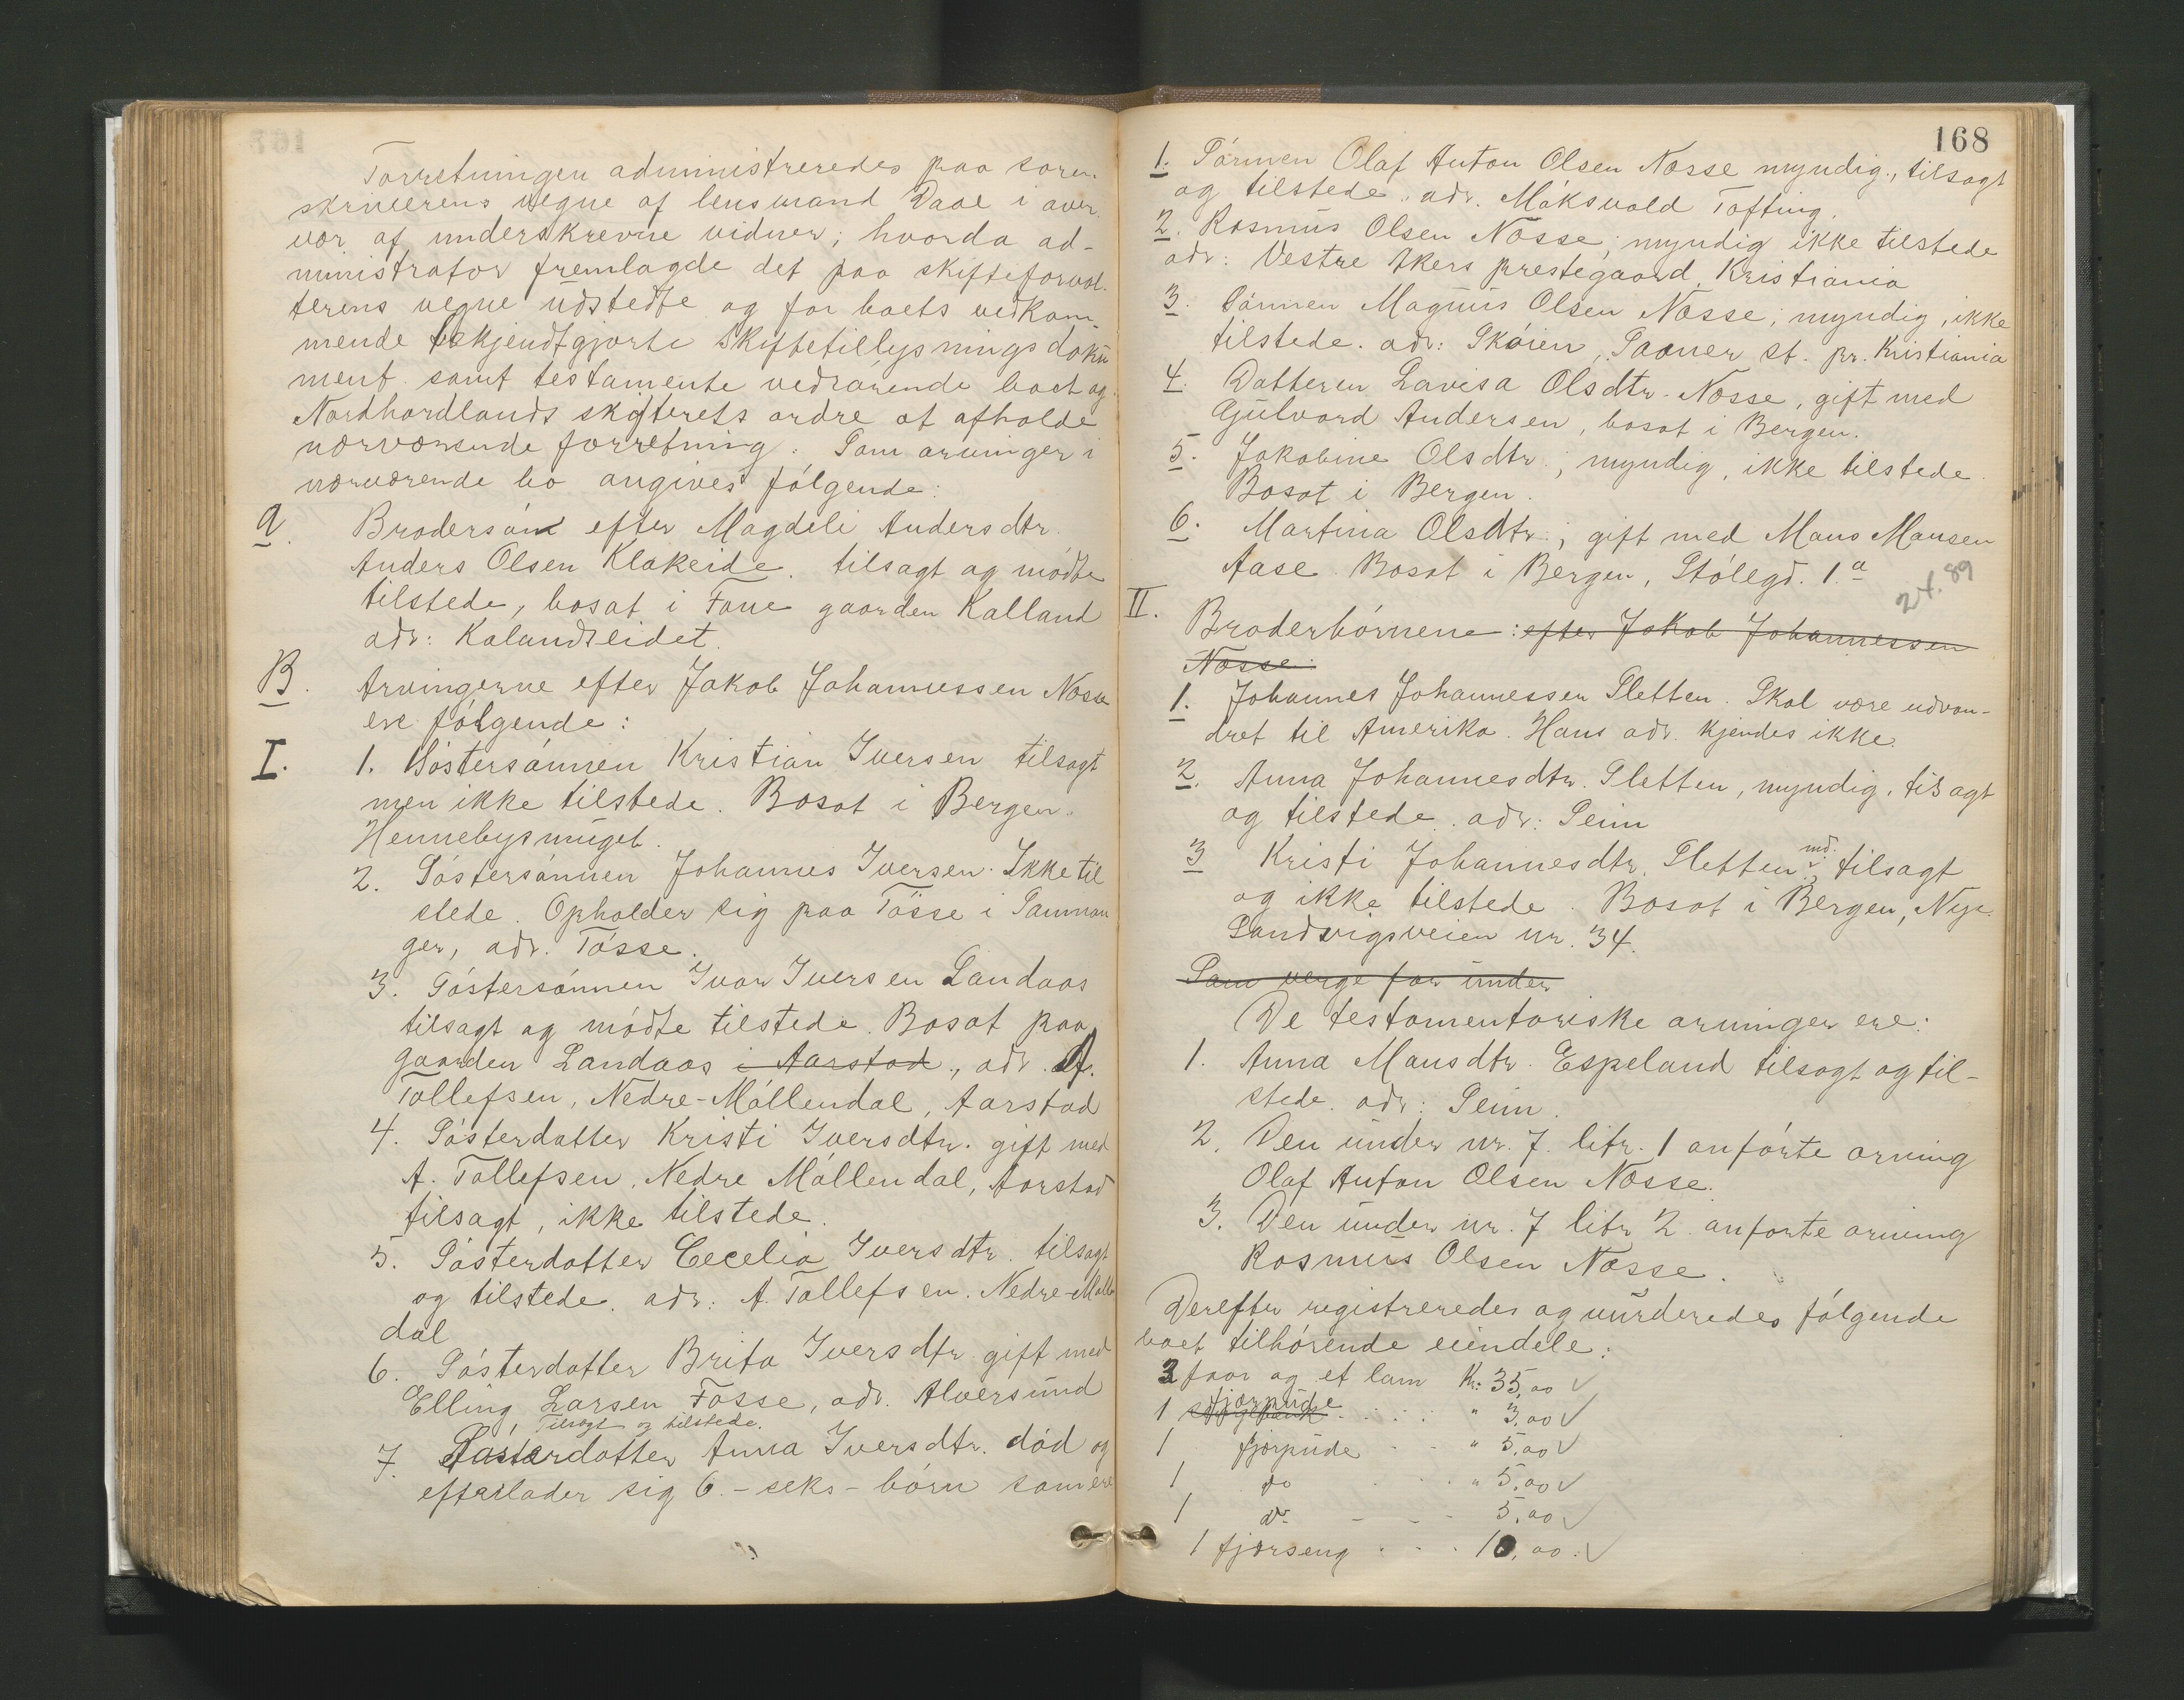 Forretningen administreredes paa soren-
skriverens vegne af lensmand Daae i over
vær af underskrevne vidner; hvorda ad-
ministrator fremlagde det paa skifteforval-
terens vegne udstedte og for boets vedkom-
mende bekjendtgjorte skiftetillysningsdoku
ment samt testamente vedrørende boet og
Nordhordlands skifterets ordre at afholde
nærværende forretning. Som arvinger i
nærværende bo angives følgende:
A. Brodersøn efter Magdeli Andersdtr.
Anders Olsen Klakeide. tilsagt og mødte
tilstede, bosat i Fane gaarden Kalland
adr: Kalandseidet.
B. Arvingerne efter Jakob Johannessen Nosse
ere følgende:
I. 1. Søstersønnen Kristian Iversen tilsagt
men ikke tilstede. Bosat i Bergen.
Hennebysmuget.
2. Søstersønnen Johannes Iversen. Ikke til
stede. Opholder sig paa Tösse i Samnan
ger, adr. Tøsse.
3. Søstersønnen Ivar Iversen Landaas
tilsagt og mødte tilstede. Bosat paa
gaarden Landaas i Aarstad., adr. A.
Tollefsen, Nedre-Møllendal, Aarstad
4. Søsterdatter Kristi Iversdtr. gift med
A. Tollefsen, Nedre Møllendal, Aarstad
tilsagt, ikke tilstede.
5. Søsterdatter Cecelia Iversdtr. tilsagt
og tilstede. adr: A. Tollefsen. Nedre-Mølle
dal
6. Søsterdatter Brita Iversdtr. gift med
Elling Larsen Fosse, adr. Alversund
Tilsagt og tilstede.
7. Søsterdatter Anna Iversdtr. død og
efterlader sig 6 - seks - børn som ere
168
1. Sønnen Olaf Anton Olsen Nosse myndig., tilsagt
og tilstede. adr. Möksvold Tofting.
2. Rasmus Olsen Nosse; myndig ikke tilstede
adr: Vestre Akers prestegaard, Kristiania
3. Sønnen Magnus Olsen Nosse; myndig, ikke
tilstede. adr: Skøien, Saaner st. pr. Kristiania
4. Datteren Lavisa Olsdtr. Nosse, gift med
Gulvard Andersen, bosat i Bergen.
5. Jakobine Olsdtr.; myndig, ikke tilstede.
Bosat i Bergen.
6. Martina Olsdtr.; gift med Mans Mansen
Aase. Bosat i Bergen, Stölegd. 1.a
24.89
II. Broderbörnene: efter Jakob Johannessen
Nosse.
1. Johannes Johannessen Sletten. Skal være udvan-
dret til Amerika. Hans adr. kjendes ikke.
2. Anna Johannesdtr. Sletten, myndig, tilsagt
og tilstede. adr: Seim
3 Kristi Johannesdtr. Sletten md.; tilsagt
og ikke tilstede. Bosat i Bergen, Nye
Sandvigsveien nr. 34.
Som verge for under
De testamentariske arvinger ere:
1. Anna Mansdtr. Espeland tilsagt og til-
stede. adr: Seim.
2. Den under nr. 7. litr. 1 anførte arving
Olaf Anton Olsen Nosse.
3. Den under nr. 7 litr 2 anførte arving
Rasmus Olsen Nosse.
Derefter registreredes og vurderedes følgende
boet tilhørende eiendele:
3 faar og et lam Kr. 35,00 ✓
1 fjærpude . . . . " 3,00 ✓
1 fjærpude - - " 5,00 ✓
1 do . . " 5,00 ✓
1 do - - - 5,00 ✓
1 fjærseng . . . 10,00. ✓